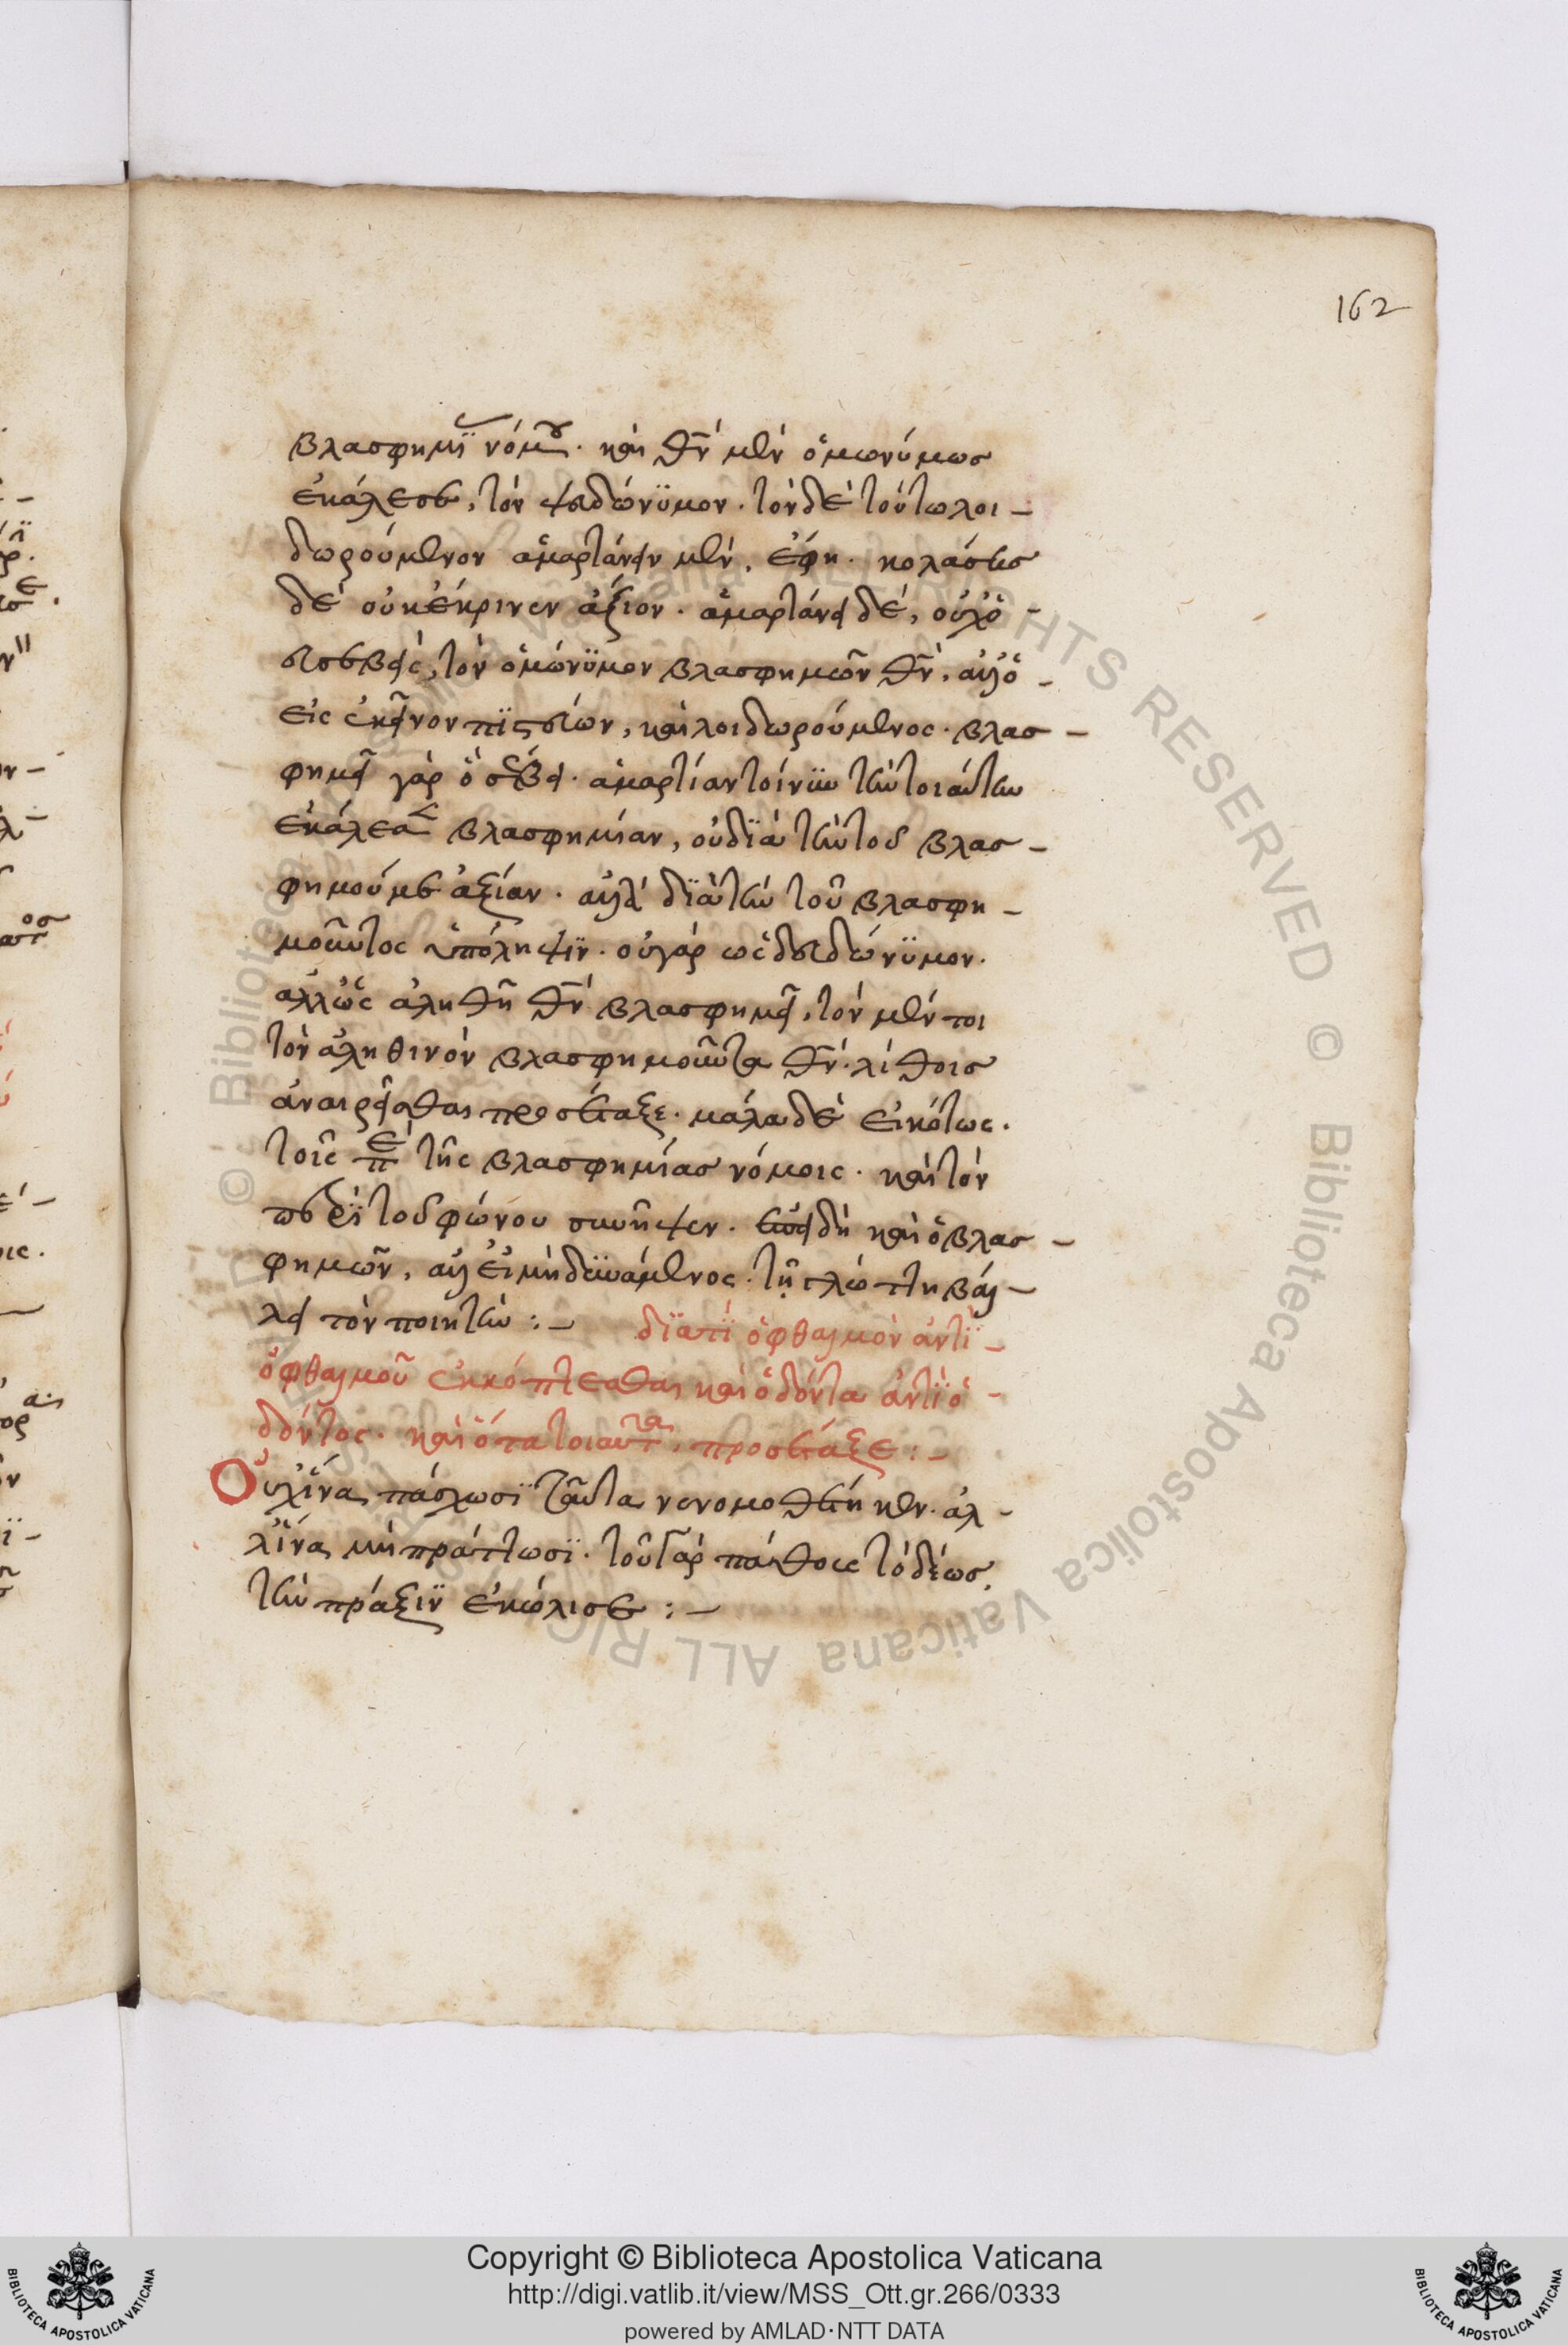 162
βλασφημῒ νόμου. και θν μὲν ὁμωνύμως
ἐκάλεσε, τὸν ψευδώνϋμον. τὸν δὲ τούτω λοι-
δωρούμενον ἁμαρτάνειν μὲν, ἔφη. κολάσεως
δὲ οὐκ ἔκρινεν ἄξιον. ἁμαρτάνει δὲ, οὐχ ὁ
εὐσεβεὶς, τὸν ὁμώνϋμον βλασφημῶν θν, ἀλλ ὁ-
εἰς ἐκεῖνον πϊστεύων, καὶ λοιδωρούμενος. βλασ-
φημεῖ γὰρ ὃ σέβει. ἁμαρτίαν τοίνϋν τὴν τοιαύτην
ἐκάλεσε βλασφημίαν, οὐ δϊὰ τὴν τοῦ βλασ-
φημούμε ἀξίαν. ἀλλὰ δϊὰ τὴν τοῦ βλασφη-
μοῦντος ὑπόληψϊν. οὐ γάρ ὡς ψευδώνϋμον.
ἀλλ ὡς ἀληθῆ θν βλασφημεῖ, τὸν μέν τοι
τὸν ἀληθινὸν βλασφημοῦντα θν. λίθοις
ἀναιρεῖσθαι προσέταξε. μάλα δὲ εἰκότως.
τοῖς πε τῆς βλασφημίας νόμοις. καὶ τὸν
περϊ τοῦ φώνου συνῆψεν. ἐπειδὴ καὶ ὁ βλασ-
φημῶν, ἀλλ εἰ μὴ δϋνάμενος. τῇ γλώττη βάλ-
λει τὸν ποιητὴν :- δϊατϊ ὀφθαλμὸν ἀντϊ-
ὀφθαλμοῦ ἐκκόπτεσθαι καὶ ὀδόντα ἀντϊ ὀ-
δόντος. καὶ ὅσα τοιαῦτα, προσέταξε :-
Οὐχ ἵνα πάσχωσϊ ταῦτα νενομοθέτηκεν. ἀλ-
λ ἵνα μὴ πράττωσϊ. τοῦ γὰρ πάθους τὸ δέως,
τὴν πράξϊν ἐκώλισε :-
Copyright © Biblioteca Apostolica Vaticana
http://digi.vatlib.it/view/MSS_Ott.gr.266/0333
powered by AMLAD·NTT DATA